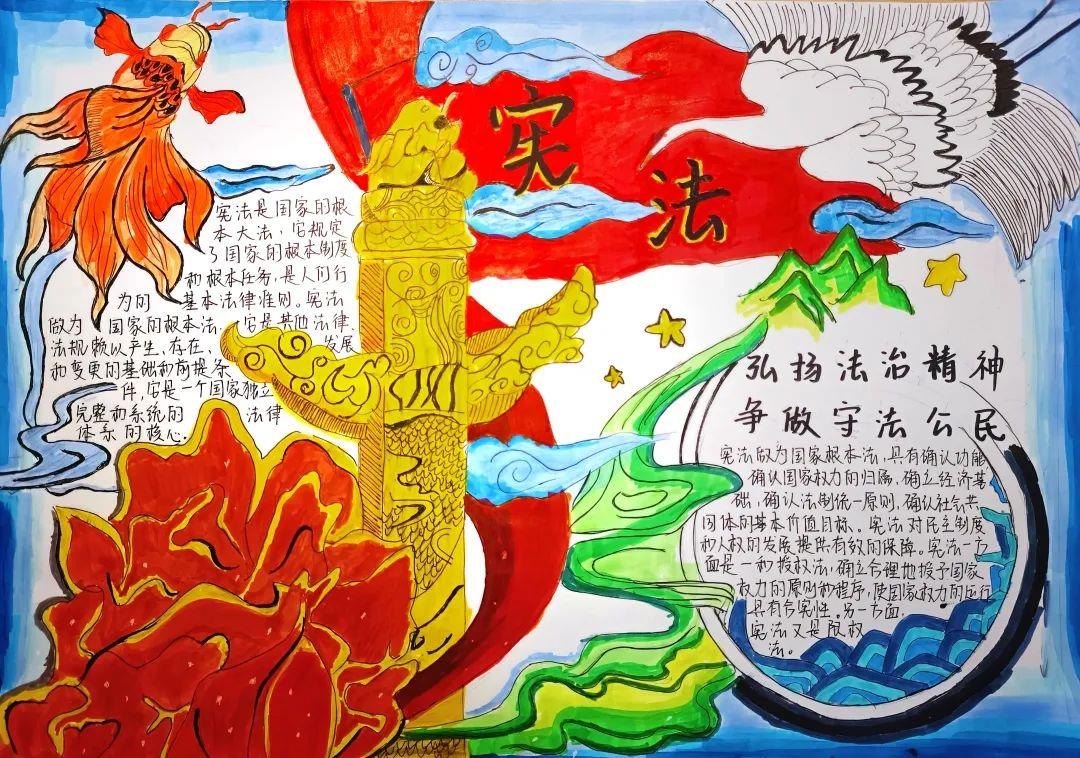 宪法
宪法是国家的根
本大法，它规定
了国家的根本制度
和根本任务，是人们行
为的 基本法律准则。宪法
做为 国家的根本法，它是其他法律、
法规赖以产生、存在、发展
和变更的基础和前提条
件，它是一个国家独立
完整和系统的 法律
体系的核心。
弘扬法治精神
争做守法公民
宪法做为国家根本法，具有确认功能
确认国家权力的归属，确立经济基
础，确认法制统一原则，确认社会共
同体的基本价值目标。宪法对民主制度
和人权的发展提供有效的保障。宪法一方
面是一种授权法，确立合理地授予国家
权力的原则和程序，使国家权力的运行
具有合宪性。另一方面，
宪法又是限权
法。